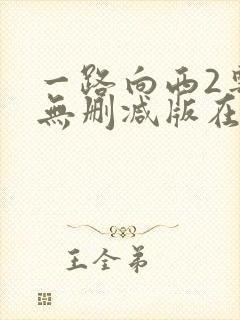 一路向西2
無刪減版在
王全弟